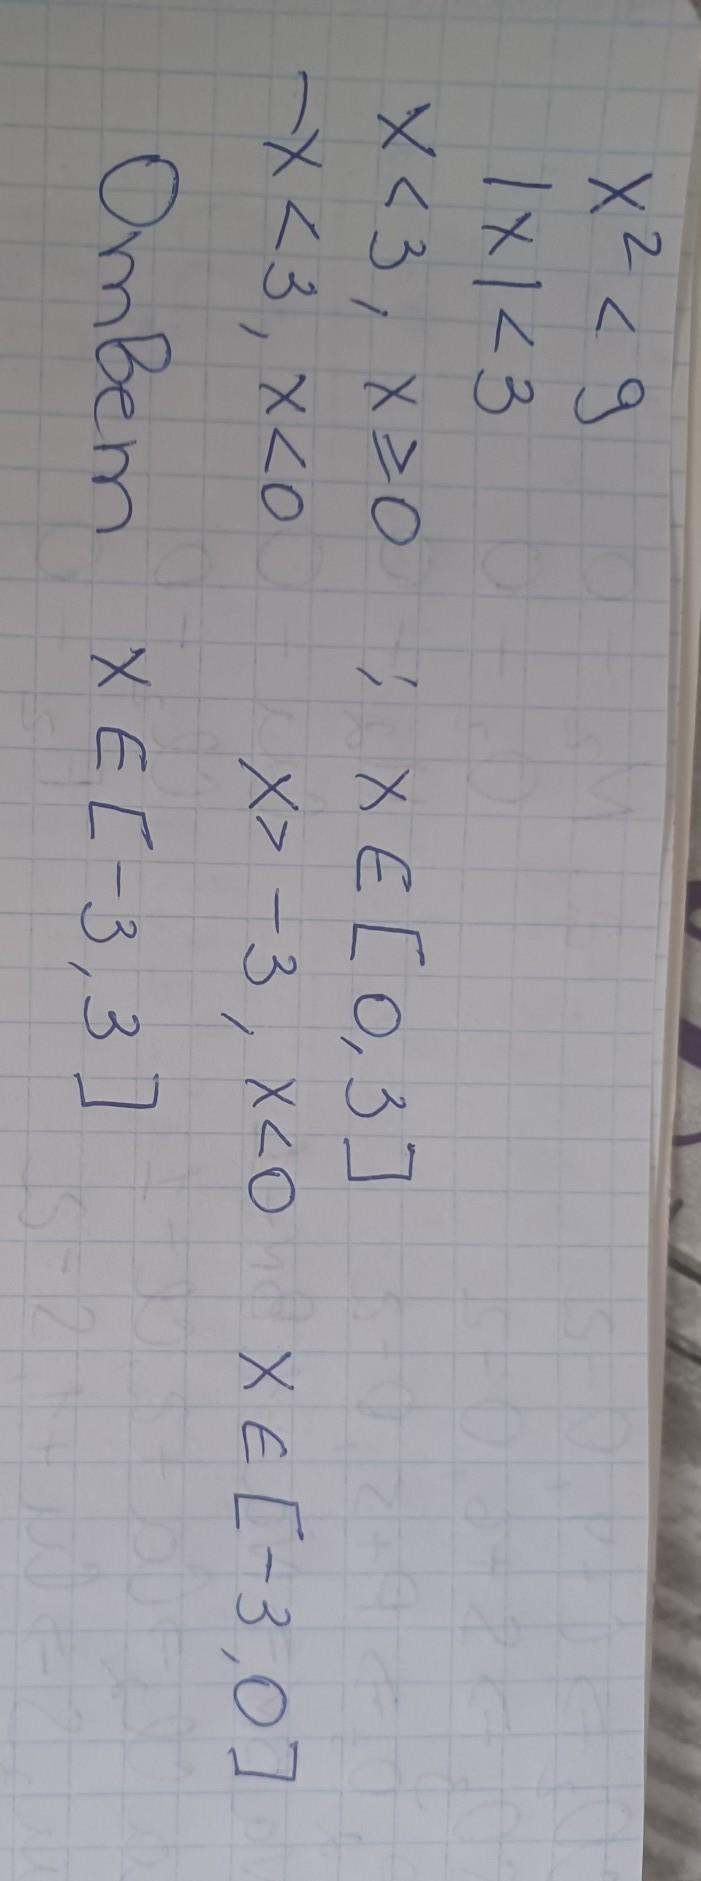 x² < 9
|x| < 3
x < 3, x ≥ 0 ; x ∈ [0, 3]
-x < 3, x < 0 x > -3, x < 0 x ∈ [-3, 0]
Ответ x ∈ [-3, 3]